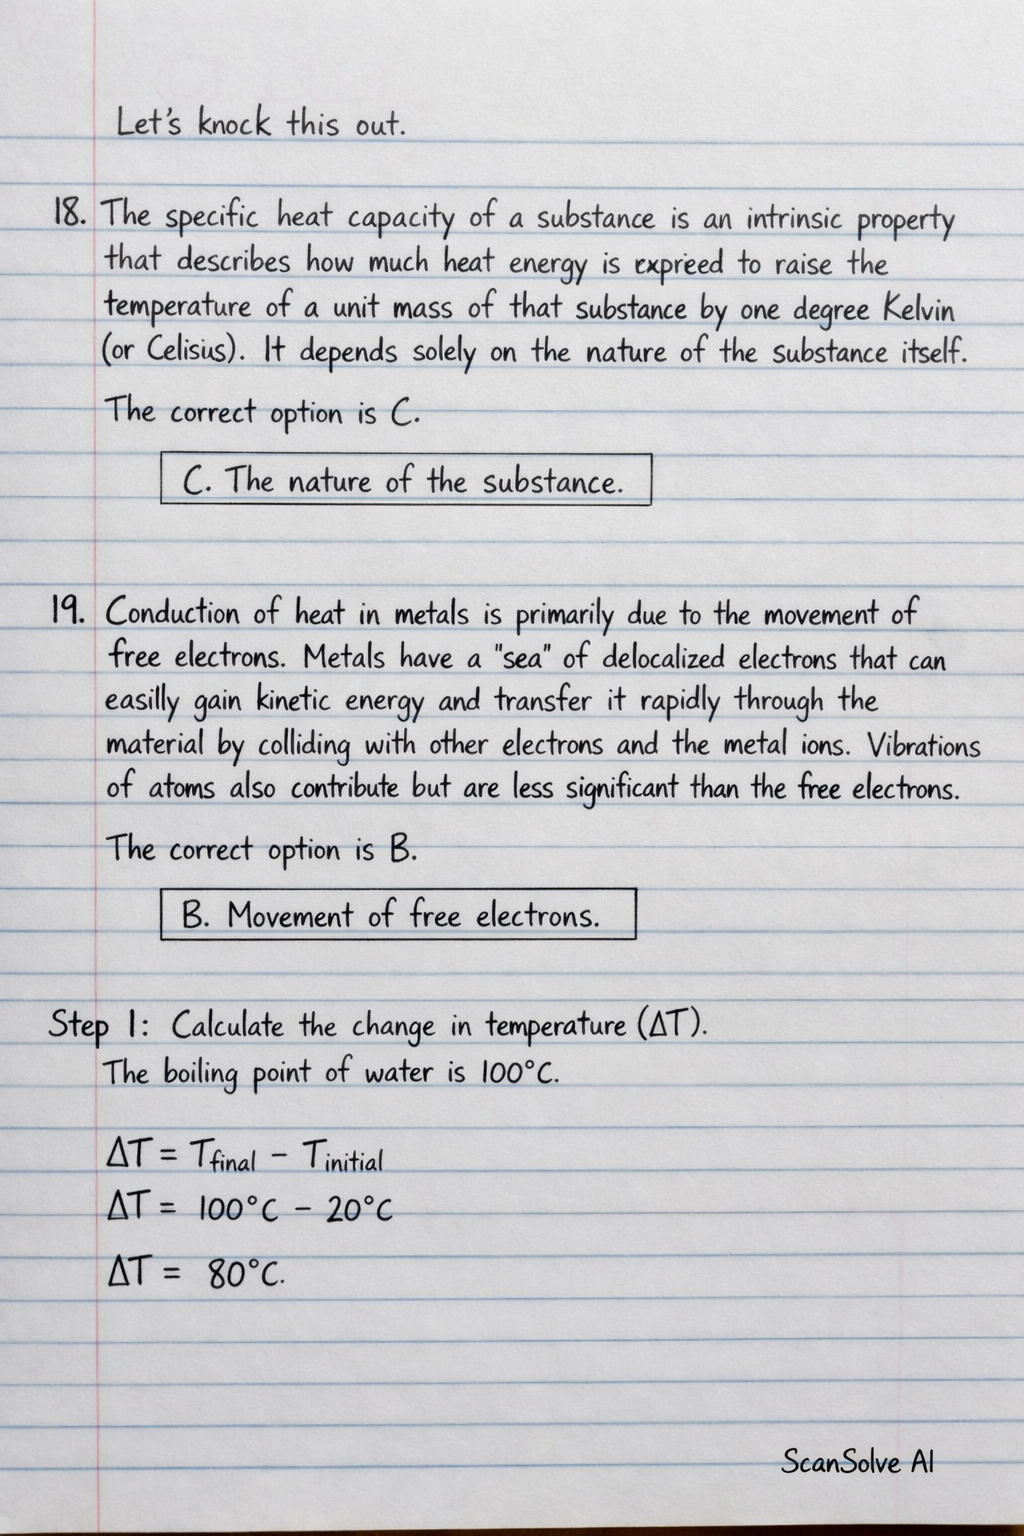 Let's knock this out.
18. The specific heat capacity of a substance is an intrinsic property
that describes how much heat energy is expreed to raise the
temperature of a unit mass of that substance by one degree Kelvin
(or Celisius). It depends solely on the nature of the substance itself.
The correct option is C.
C. The nature of the substance.
19. Conduction of heat in metals is primarily due to the movement of
free electrons. Metals have a "sea" of delocalized electrons that can
easilly gain kinetic energy and transfer it rapidly through the
material by colliding with other electrons and the metal ions. Vibrations
of atoms also contribute but are less significant than the free electrons.
The correct option is B.
B. Movement of free electrons.
Step 1: Calculate the change in temperature (ΔT).
The boiling point of water is 100°C.
ΔT = Tfinal - Tinitial
ΔT = 100°C - 20°C
ΔT = 80°C.
ScanSolve AI